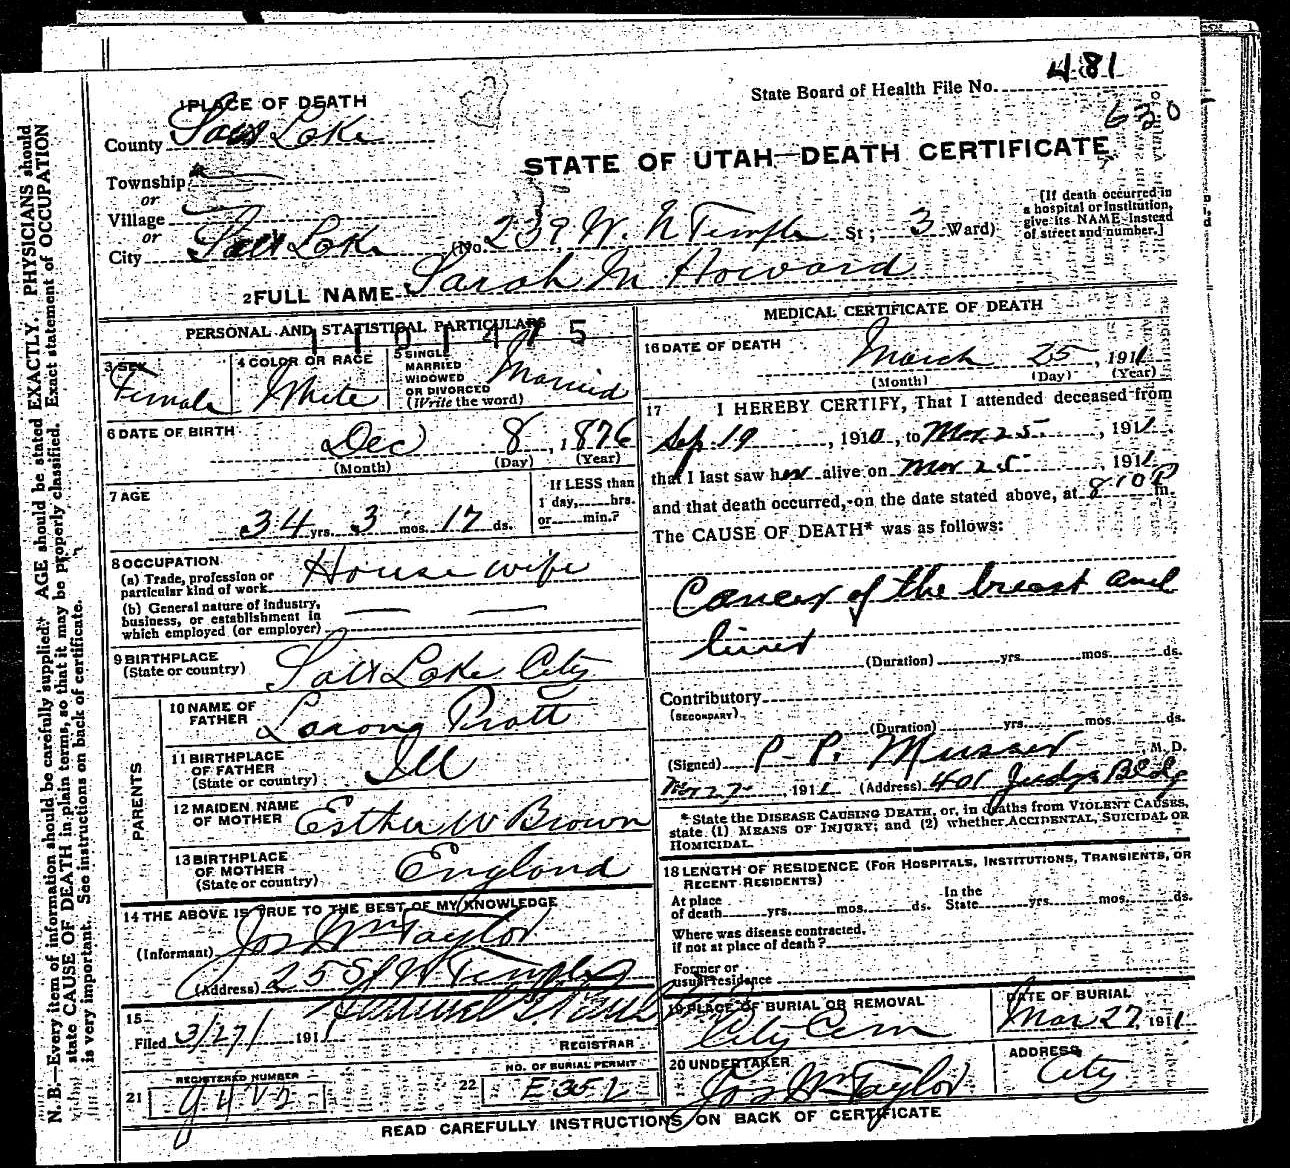 481
State Board of Health File No.
630
1 PLACE OF DEATH
County Salt Lake
STATE OF UTAH—DEATH CERTIFICATE
Township
or
Village
or
City Salt Lake (No. 239 W. N Temple St; 3 Ward)
[If death occurred in
a hospital or institution,
give its NAME instead
of street and number.]
2 FULL NAME Sarah M Howard
PERSONAL AND STATISTICAL PARTICULARS
1101475
3 SEX
Female
4 COLOR OR RACE
White
5 SINGLE
MARRIED
WIDOWED
OR DIVORCED
(Write the word)
Married
6 DATE OF BIRTH
Dec 8, 1876
(Month) (Day) (Year)
7 AGE
34 yrs. 3 mos. 17 ds.
If LESS than
1 day, hrs.
or min.?
8 OCCUPATION
(a) Trade, profession or
particular kind of work House wife
(b) General nature of industry,
business, or establishment in
which employed (or employer)
9 BIRTHPLACE
(State or country) Salt Lake City
PARENTS
10 NAME OF
FATHER Laron Pratt
11 BIRTHPLACE
OF FATHER
(State or country) Ill
12 MAIDEN NAME
OF MOTHER Esther W Brown
13 BIRTHPLACE
OF MOTHER
(State or country) England
14 THE ABOVE IS TRUE TO THE BEST OF MY KNOWLEDGE
(Informant) Jos Wm Taylor
(Address) 25 S W Temple
15
Filed 3/27/ 1911
REGISTRAR
21 REGISTERED NUMBER
22 NO. OF BURIAL PERMIT
E 352
MEDICAL CERTIFICATE OF DEATH
16 DATE OF DEATH
March 25, 1911
(Month) (Day) (Year)
17 I HEREBY CERTIFY, That I attended deceased from
Sep 19, 1910, to Mar 25, 1911,
that I last saw her alive on Mar 25, 1911
and that death occurred, on the date stated above, at 8'10 P m.
The CAUSE OF DEATH* was as follows:
Cancer of the breast and
liver
(Duration) yrs. mos. ds.
Contributory
(SECONDARY)
(Duration) yrs. mos. ds.
(Signed) P. P. Musser, M. D.
Mar 27, 1911 (Address) 401 Judge Bldg
* State the DISEASE CAUSING DEATH, or, in deaths from VIOLENT CAUSES,
state (1) MEANS OF INJURY; and (2) whether ACCIDENTAL, SUICIDAL OR
HOMICIDAL.
18 LENGTH OF RESIDENCE (FOR HOSPITALS, INSTITUTIONS, TRANSIENTS, OR
RECENT RESIDENTS)
At place
of death yrs. mos. ds.
In the
State yrs. mos. ds.
Where was disease contracted,
if not at place of death?
Former or
usual residence
19 PLACE OF BURIAL OR REMOVAL
City Cem
DATE OF BURIAL
Mar 27, 1911
20 UNDERTAKER
Jos Wm Taylor
ADDRESS
City
READ CAREFULLY INSTRUCTIONS ON BACK OF CERTIFICATE
N. B.—Every item of information should be carefully supplied. AGE should be stated EXACTLY. PHYSICIANS should
state CAUSE OF DEATH in plain terms, so that it may be properly classified. Exact statement of OCCUPATION
is very important. See instructions on back of certificate.